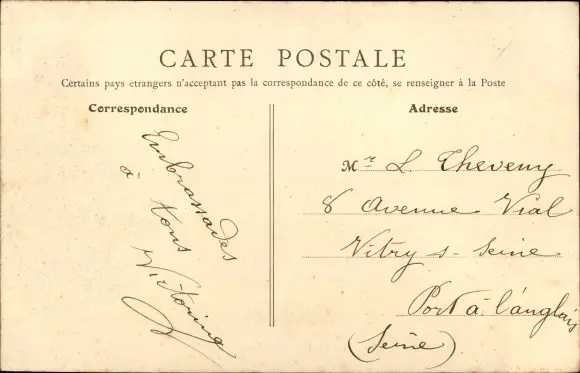 CARTE POSTALE
Certains pays étrangers n'acceptant pas la correspondance de ce côté, se renseigner à la Poste
Correspondance
Embrassades
à
tous
Victorine
Adresse
Mr L. Theveny
8 Avenue Vial
Vitry s- Seine
Port à l'anglais
(Seine)